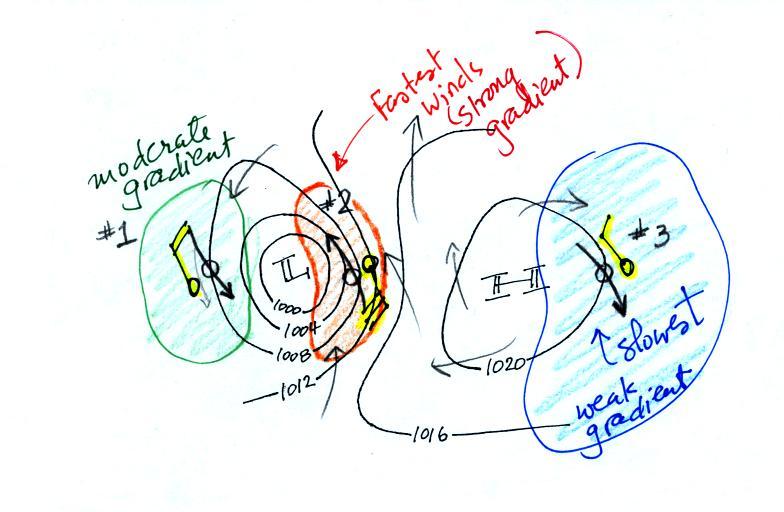 Fastest
winds
(strong
gradient)
moderate
gradient
#1
#2
#3
L
H
1000
1004
1008
1012
1016
1020
slowest
weak
gradient